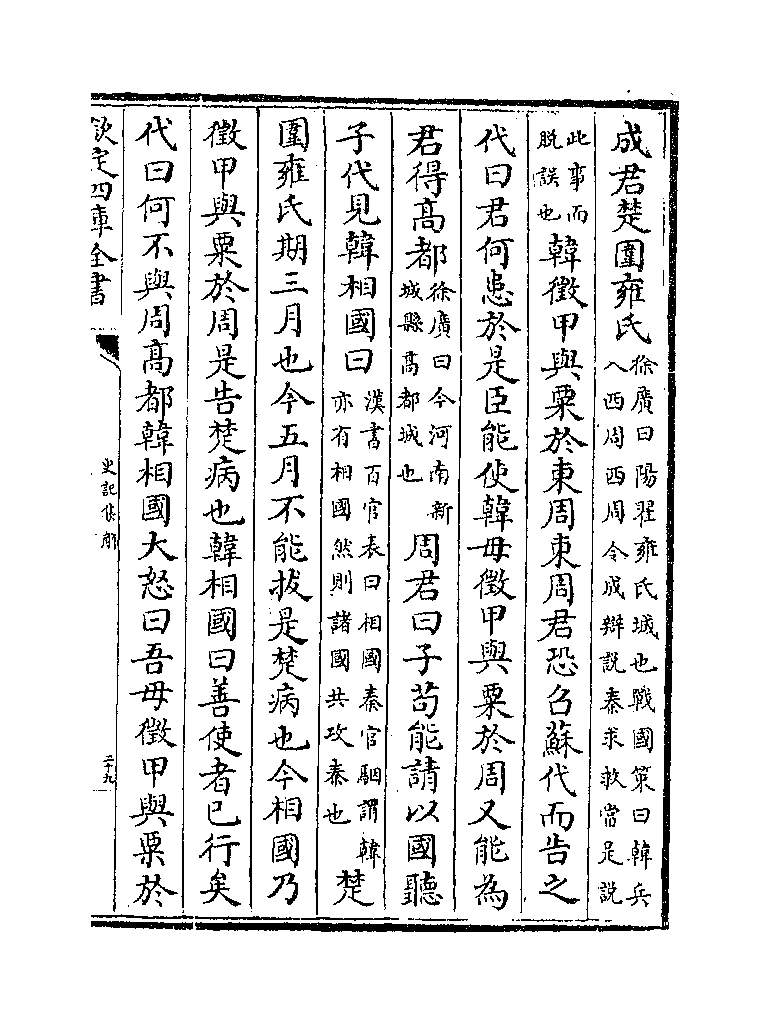 成君楚圍雍氏徐廣曰陽翟雍氏城也戰國策曰韓兵入西周西周令成辯說秦求救當是說
此事而脱誤也韓徵甲與粟於東周東周君恐召蘇代而告之
代曰君何患於是臣能使韓毋徵甲與粟於周又能為
君得髙都徐廣曰今河南新城縣髙都城也周君曰子苟能請以國聽
子代見韓相國曰漢書百官表曰相國秦官駰謂韓亦有相國然則諸國共攻秦也楚
圍雍氏期三月也今五月不能拔是楚病也今相國乃
徵甲與粟於周是告楚病也韓相國曰善使者已行矣
代曰何不與周髙都韓相國大怒曰吾毋徵甲與粟於
欽定四庫全書
史記集解
二十九